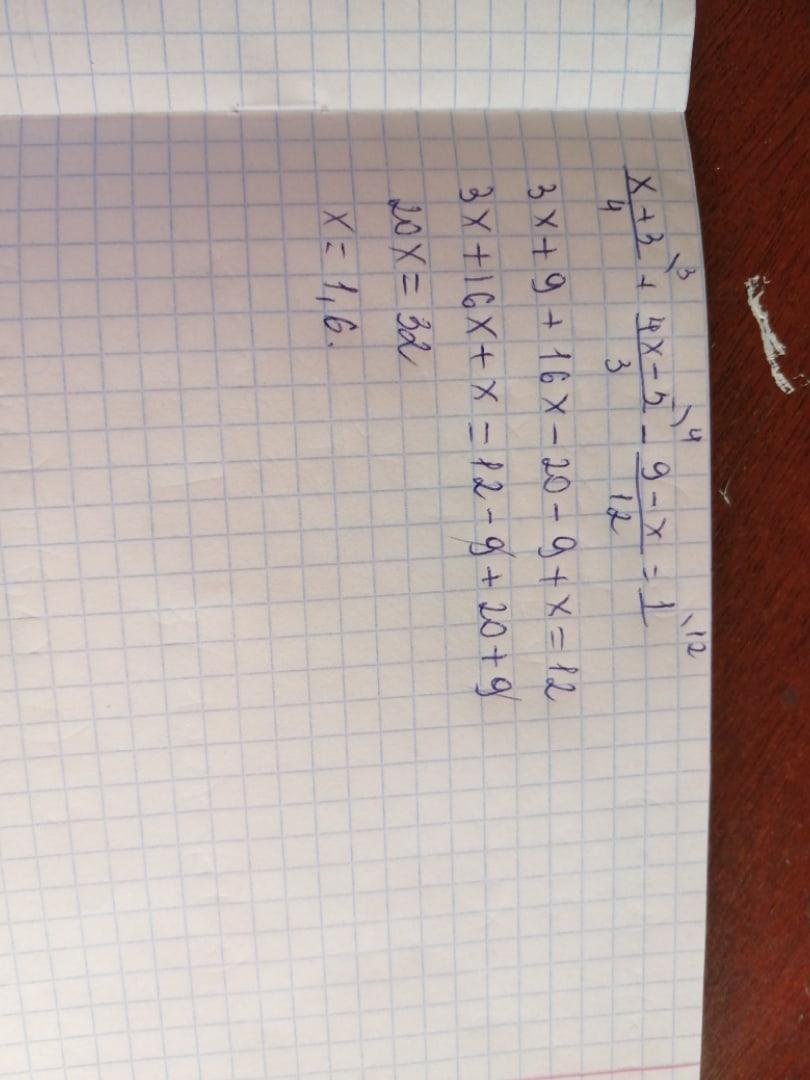 (x+3)/4 \3 + (4x-5)/3 \4 - (9-x)/12 = 1 \12
3x+9+16x-20-9+x=12
3x+16x+x=12-9+20+9
20x=32
x=1,6.